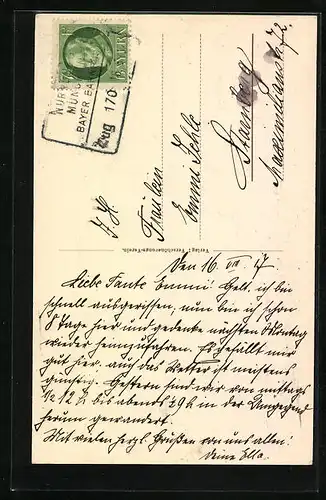 BAYERN
NÜR
MÜN
BAYER. BA
Zug 170
S. H.
Fräulein
Emmi Schle
Starnberg
Maximilianstr. 72.
Verlag Verschönerungs-Verein.
Den 16. VII. 17
Liebe Tante Emmi! Gelt, ich bin
schnell ausgerissen, nun bin ich schon
8 Tage hier und gedenke nächsten Montag
wieder heimzufahren. Es gefällt mir
gut hier, auch das Wetter ist meistens
günstig. Gestern sind wir von mittags
1/2 12 h bis abends 1/2 9 h in der Umgegend
herum gewandert.
Mit vielen herzl. Grüßen von uns allen!
Deine Ella.